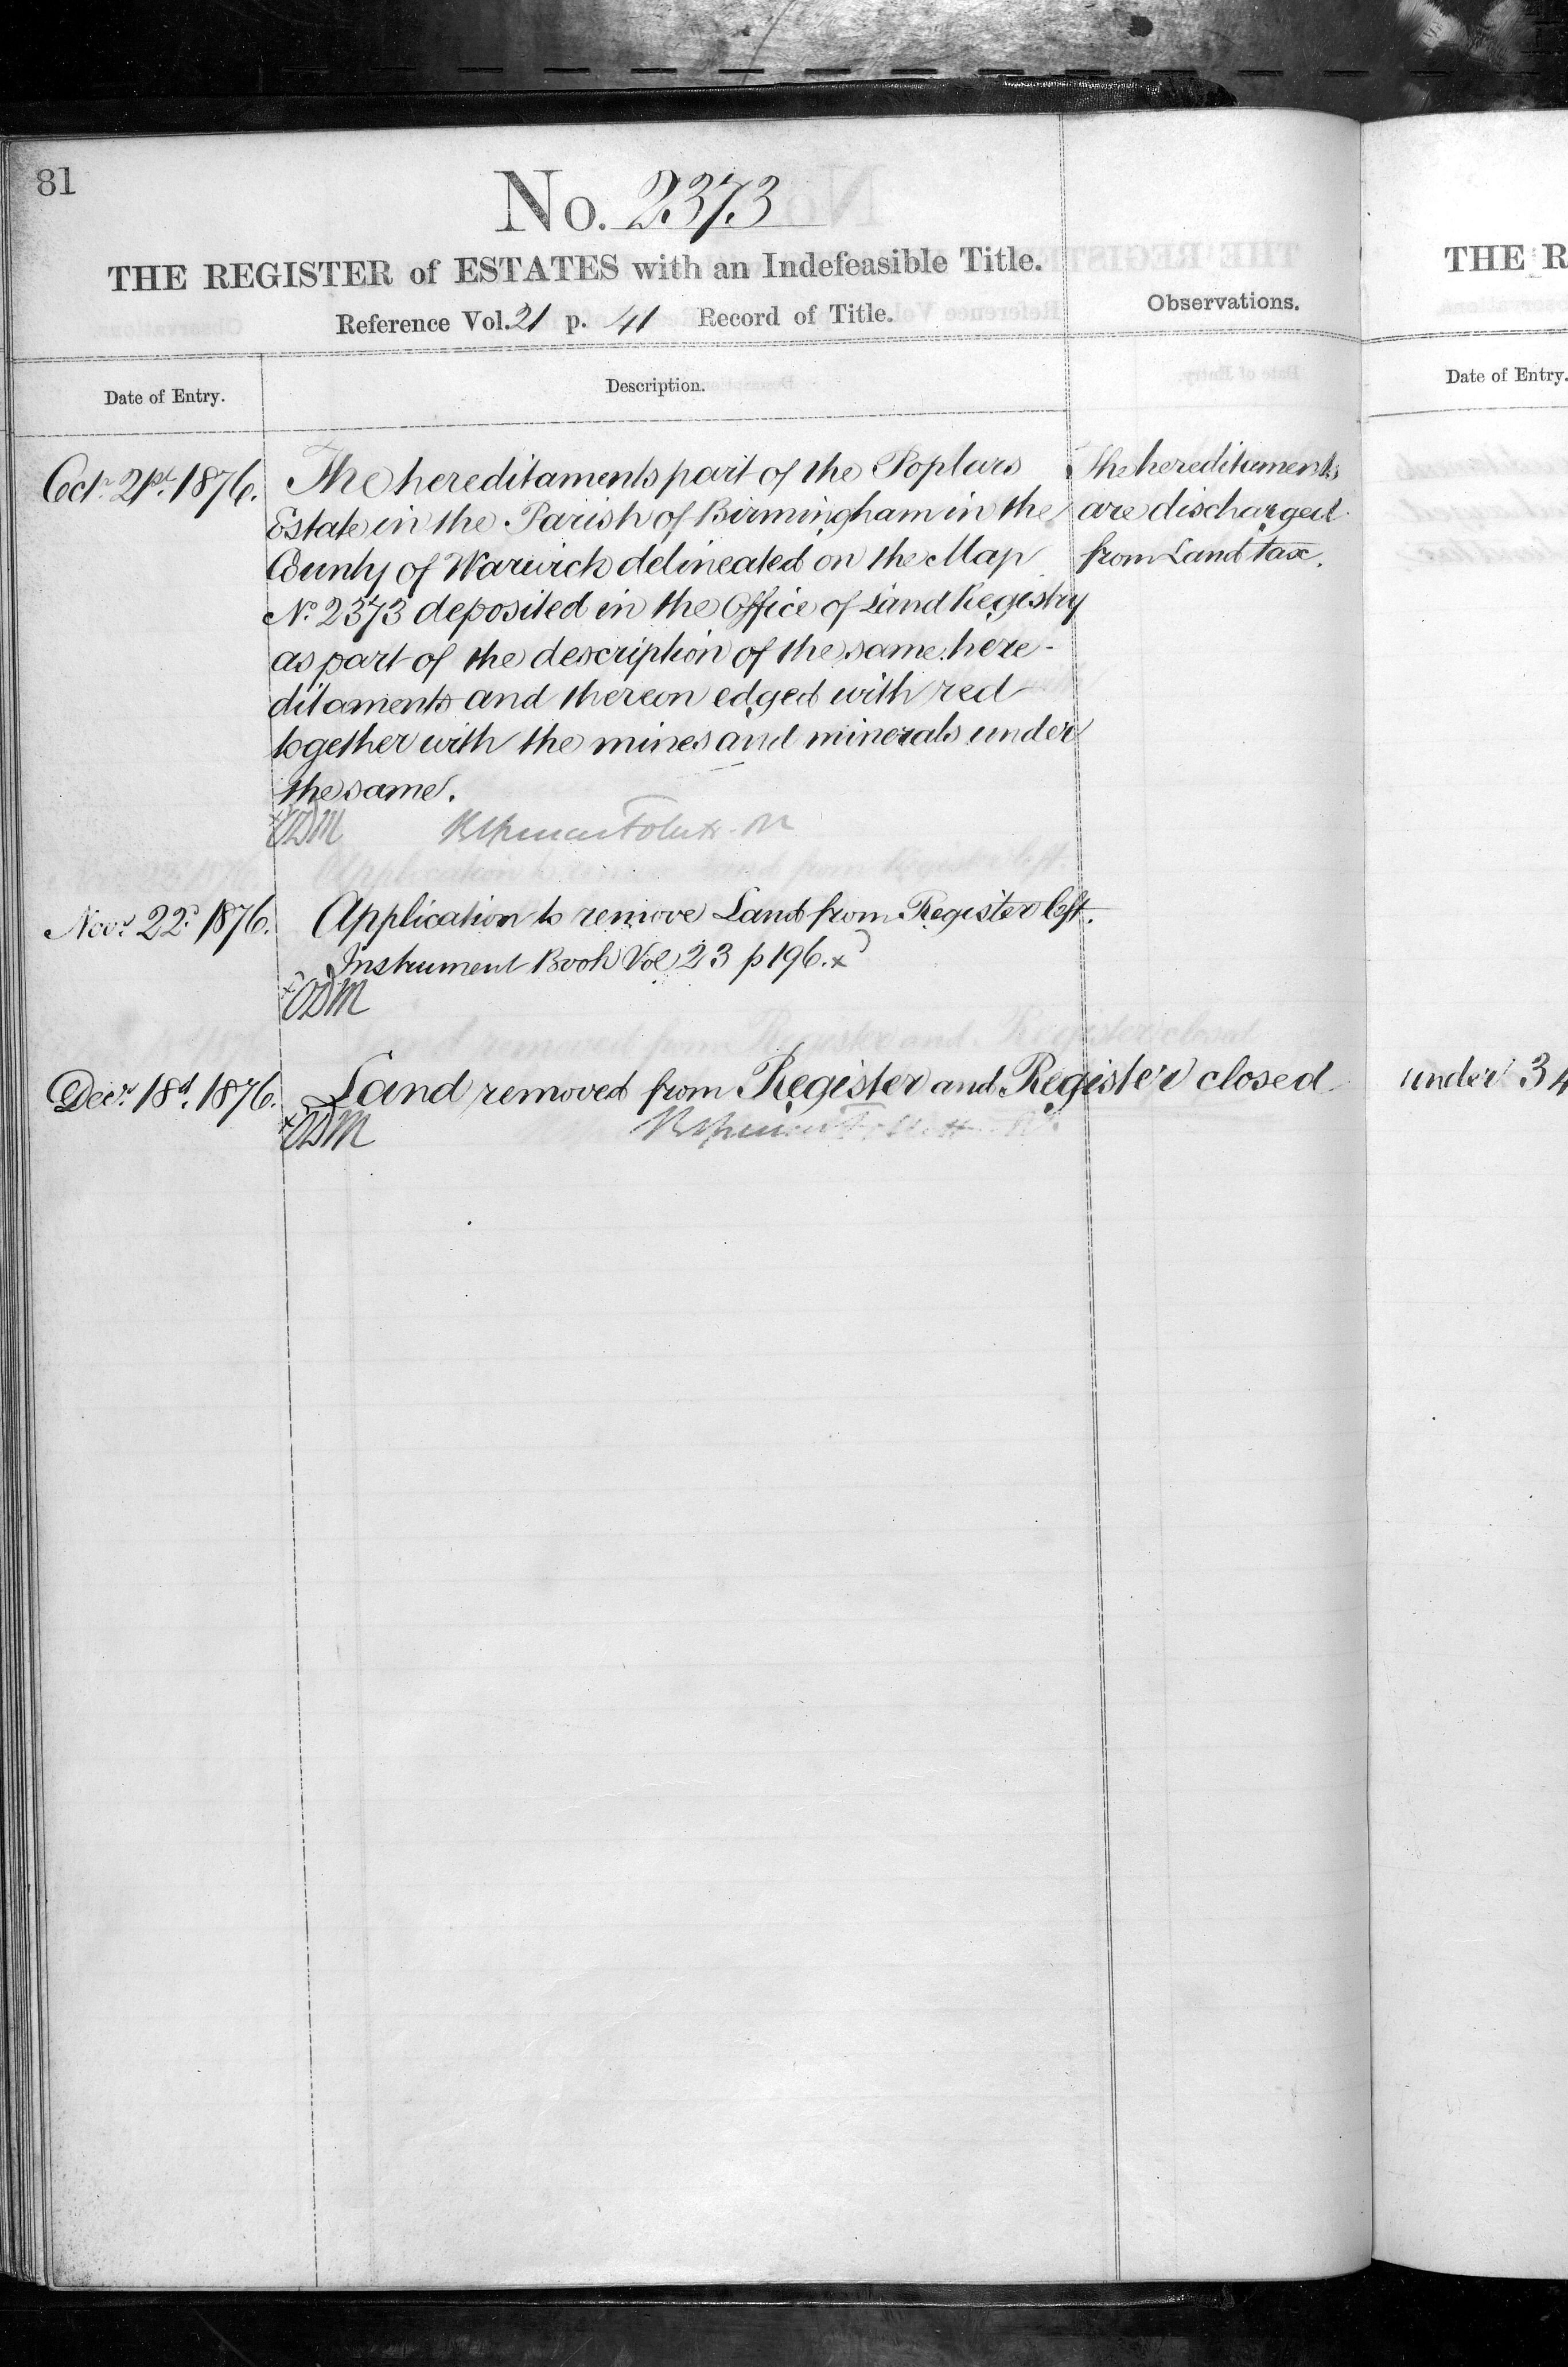 81
No. 2373
THE REGISTER of ESTATES with an Indefeasible Title.
Reference Vol. 21 p. 41 Record of Title.
Observations.
Date of Entry.
Description.
Octr. 21st. 1876.
The hereditaments part of the Poplars
Estate in the Parish of Birmingham in the
County of Warwick delineated on the Map
No. 2373 deposited in the Office of Land Registry
as part of the description of the same here-
ditaments and thereon edged with red
together with the mines and minerals under
the same.
The hereditaments
are discharged
from Land tax.
Novr. 22d. 1876.
Application to remove Land from Register left.
Instrument Book Vol 23 p 196. x
Decr. 18th. 1876.
Land removed from Register and Register closed
under 34
THE R
Date of Entry.